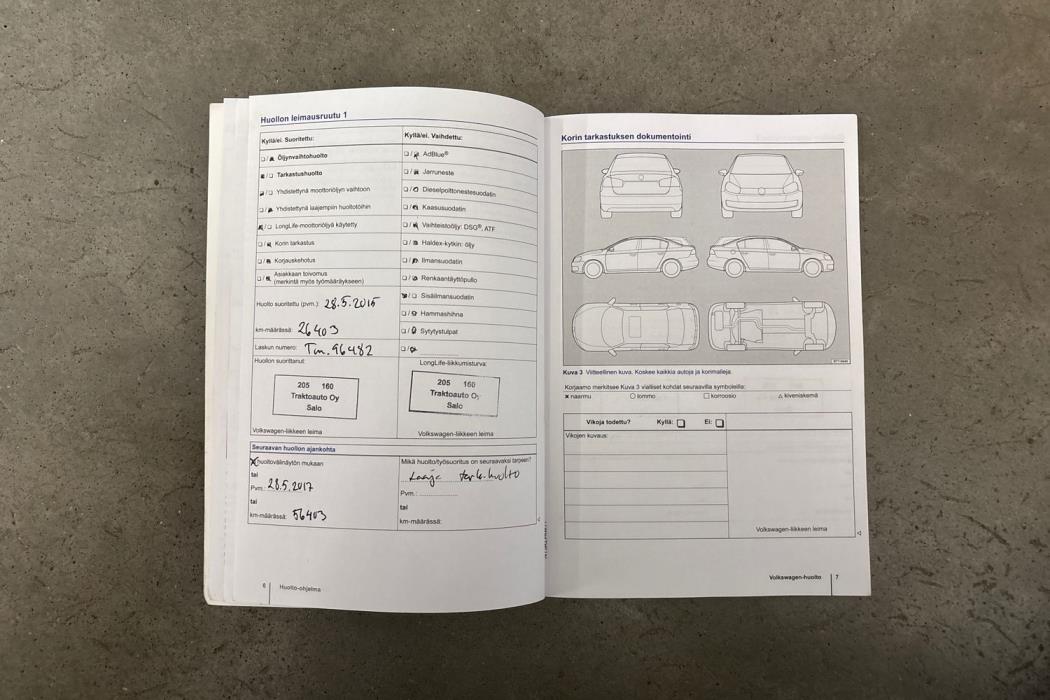 Huollon leimausruutu 1
Kyllä/ei. Suoritettu:
Öljynvaihtohuolto
Tarkastushuolto
Yhdistettynä moottoriöljyn vaihtoon
Yhdistettynä laajempiin huoltotöihin
LongLife-moottoriöljyä käytetty
Korin tarkastus
Korjauskehotus
Asiakkaan toivomus
(merkintä myös työmääräykseen)
Huolto suoritettu (pvm.): 28.5.2015
km-määrässä: 26403
Laskun numero: Tm. 96482
Huollon suorittanut:
205 160
Traktoauto Oy
Salo
Volkswagen-liikkeen leima
Kyllä/ei. Vaihdettu:
AdBlue®
Jarruneste
Dieselpolttonestesuodatin
Kaasusuodatin
Vaihteistoöljy: DSG®, ATF
Haldex-kytkin: öljy
Ilmansuodatin
Renkaantäyttöpullo
Sisäilmansuodatin
Hammashihna
Sytytystulpat
LongLife-liikkumisturva:
205 160
Traktoauto Oy
Salo
Volkswagen-liikkeen leima
Seuraavan huollon ajankohta
X huoltovälinäytön mukaan
tai
Pvm.: 28.5.2017
tai
km-määrässä: 56403
Mikä huolto/työsuoritus on seuraavaksi tarpeen?
Laaja tark.huolto
Pvm.:
tai
km-määrässä:
6 Huolto-ohjelma
Korin tarkastuksen dokumentointi
Kuva 3 Viitteellinen kuva. Koskee kaikkia autoja ja korimalleja.
Korjaamo merkitsee Kuva 3 vialliset kohdat seuraavilla symboleilla:
× naarmu ○ lommo □ korroosio △ kiveniskemä
Vikoja todettu? Kyllä: □ Ei: □
Vikojen kuvaus:
Volkswagen-liikkeen leima
Volkswagen-huolto 7